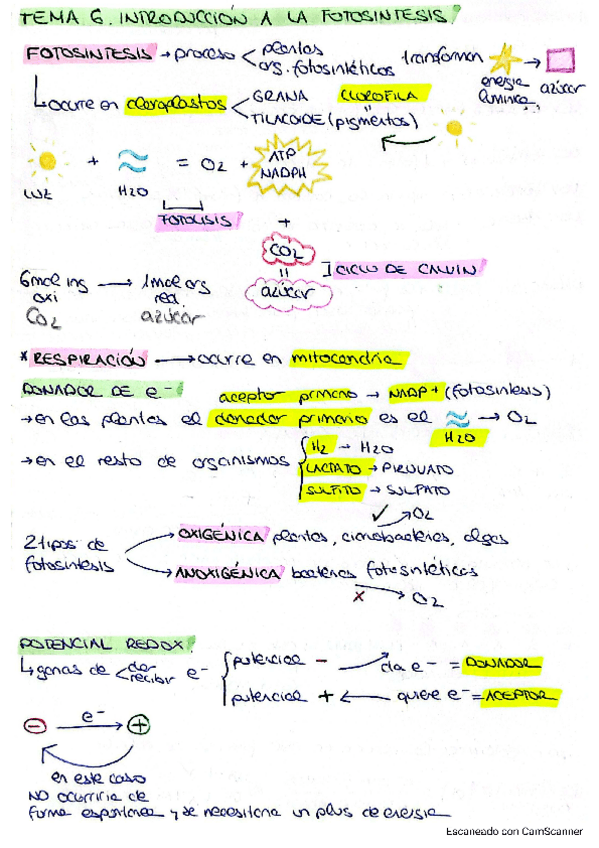 TEMA 6. INTRODUCCIÓN A LA FOTOSINTESIS
FOTOSINTESIS → proceso < plantas
org. fotosintéticos
transforman energía lumínica → azúcar
ocurre en cloroplastos < GRANA
TILACOIDE (pigmentos)
CLOROFILA
=
LUZ + H2O = O2 + ATP NADPH
FOTOLISIS
+
CO2
=
azúcar
] CICLO DE CALVIN
6mol ing → 1mol org
oxi red.
CO2 azúcar
* RESPIRACIÓN → ocurre en mitocondria
DONADOR DE e-
aceptor primario → NADP+ (fotosíntesis)
→ en las plantas el donador primario es el H2O → O2
→ en el resto de organismos { H2 → H2O
LACTATO → PIRUVATO
SULFITO → SULFATO
2 tipos de fotosíntesis
OXIGÉNICA plantas, cianobacterias, algas
✓ → O2
ANOXIGÉNICA bacterias fotosintéticas
x → O2
POTENCIAL REDOX
ganas de < dar
recibir
e-
potencial - → da e- = DONADOR
potencial + ← quiere e- = ACEPTOR
- e- → +
en este caso
NO ocurriría de
forma espontánea y se necesitaría un plus de energía
Escaneado con CamScanner